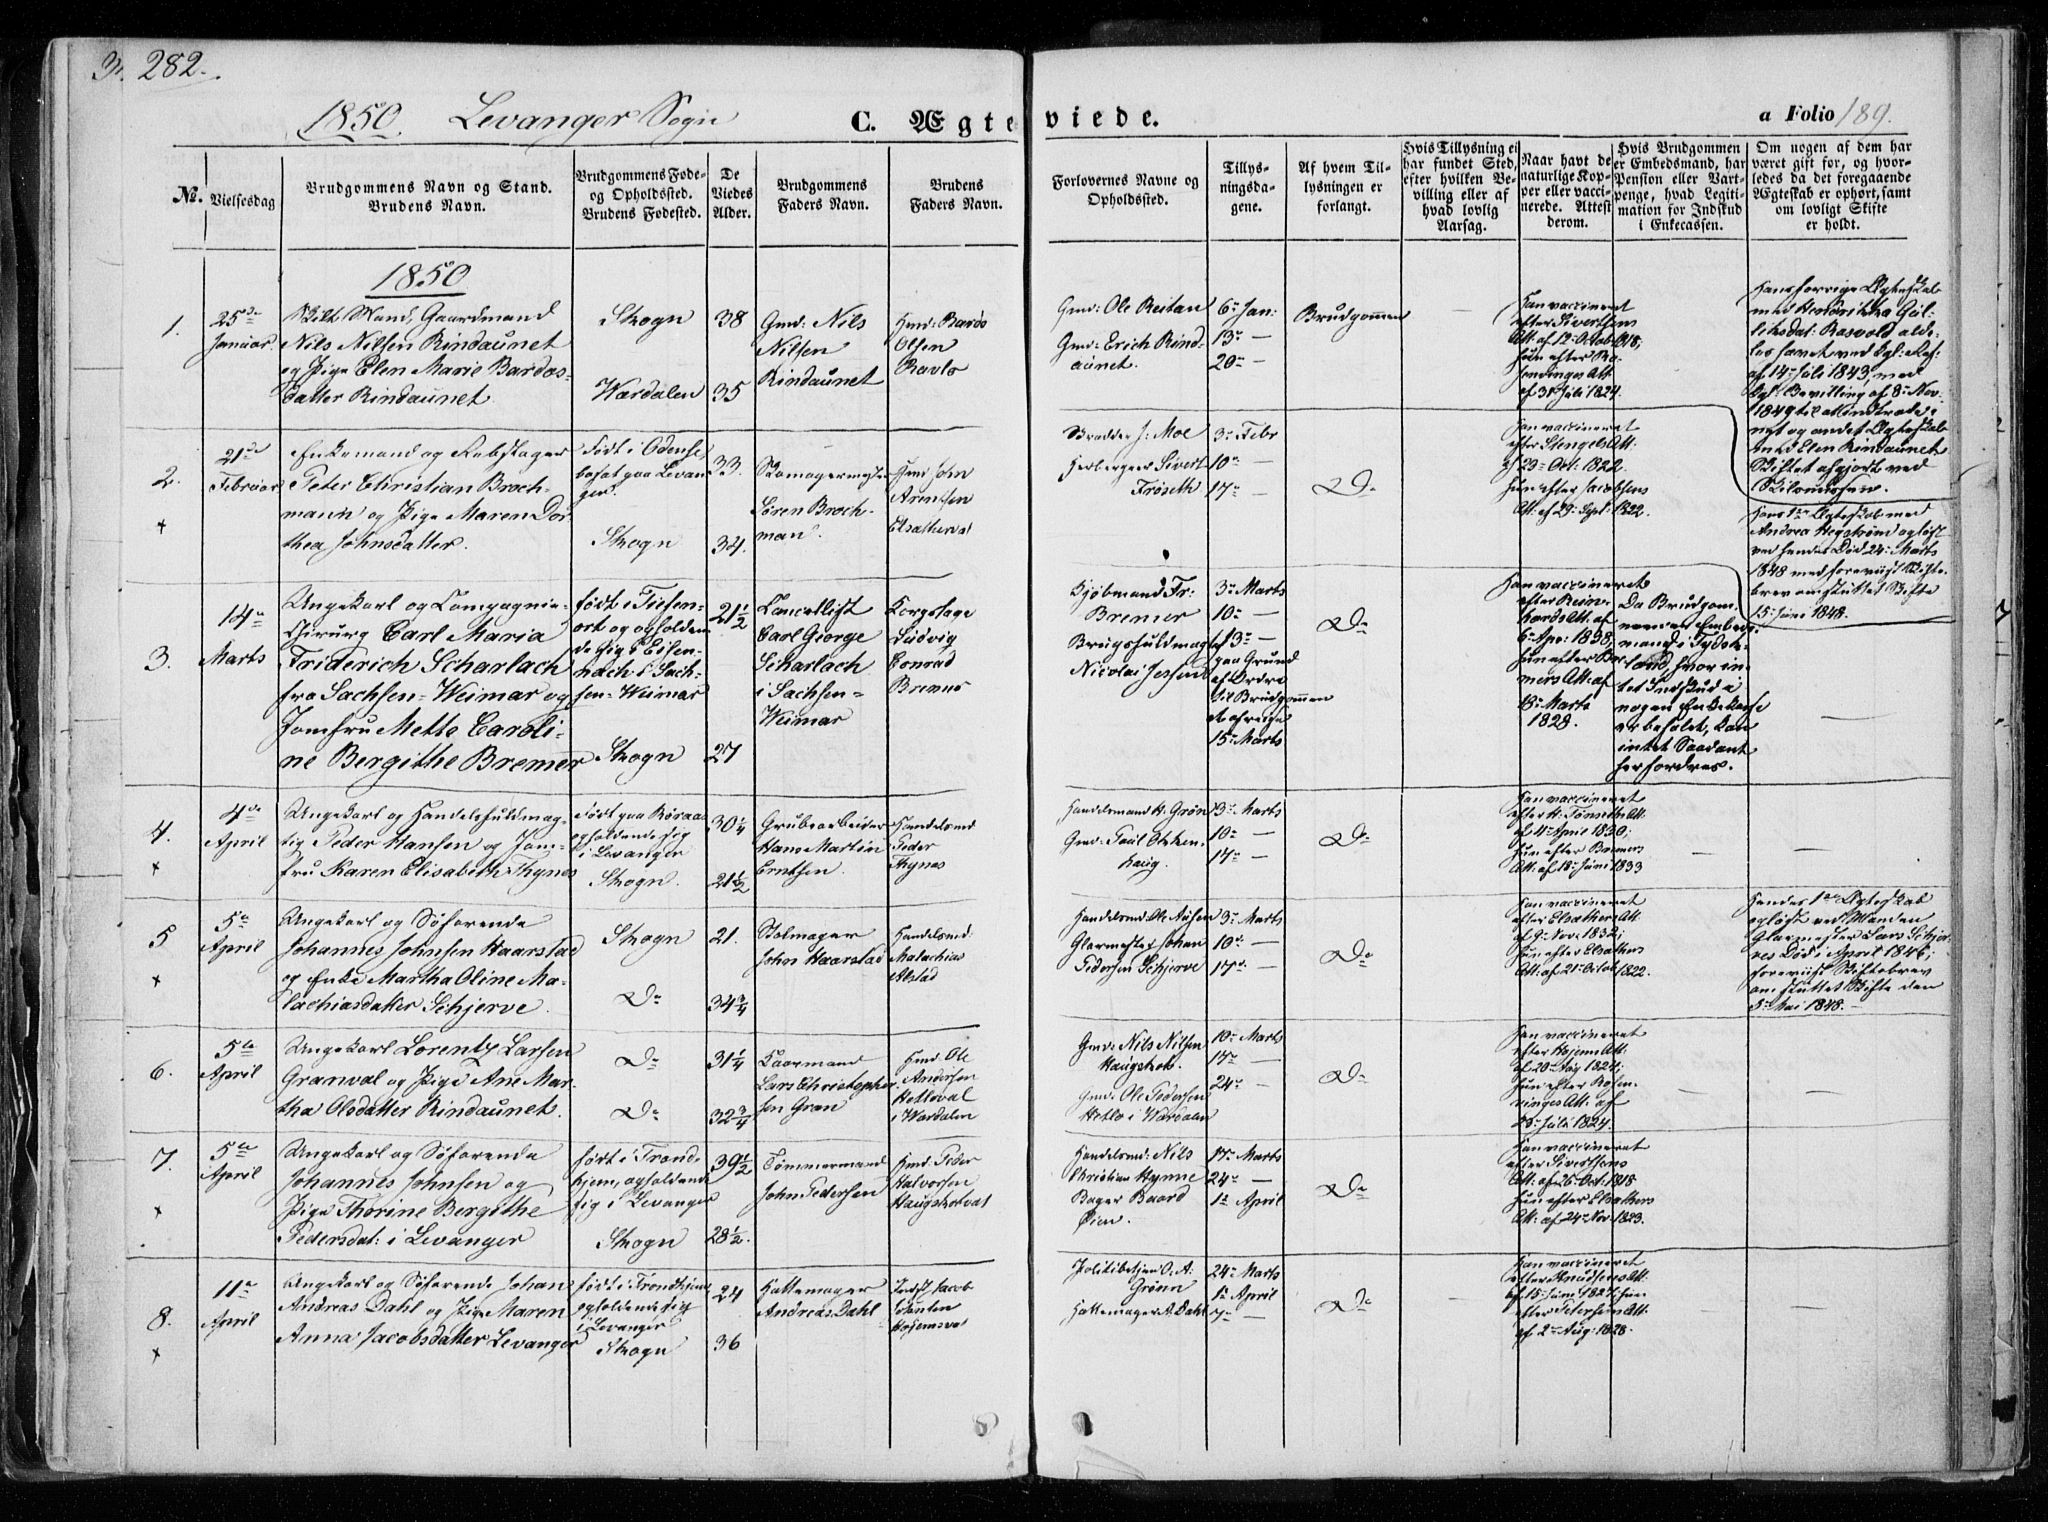 282.
1850. Levanger Sogn C. Ægteviede. a Folio 189.
No.
Vielsesdag
Brudgommens Navn og Stand.
Brudens Navn.
Brudgommens Føde-
og Opholdssted.
Brudens Fødested.
De
Viedes
Alder.
Brudgommens
Faders Navn.
Brudens
Faders Navn.
Forlovernes Navne og
Opholdssted.
Tillys-
ningsda-
gene.
Af hvem Til-
lysningen er
forlangt.
Hvis Tillysning ei
har fundet Sted,
efter hvilken Be-
villing eller af
hvad lovlig
Aarsag.
Naar havt de
naturlige Kop-
per eller vacci-
nerede. Attest
derom.
Hvis Brudgommen
er Embedsmand, har
Pension eller Vart-
penge, hvad Legiti-
mation for Indskud
i Enkecassen.
Om nogen af dem har
været gift før, og hvor-
ledes da det foregaaende
Ægteskab er ophørt, samt
om lovligt Skifte
er holdt.
1850
1.
25de
Januar
Skilt Mand, Gaardmand
Nils Nilsen Rindaunet
og Pige Elen Marie Bardos-
datter Rindaunet.
Skogn
Værdalen
38
35
Gmd: Nils
Nilsen
Rindaunet
Hmd: Bardo
Olsen
Ravlo
Gmd: Ole Reitan
Gmd: Erich Rind-
aunet.
6te Jan:
13de —
20de —
Brudgommen
—
Han vaccineret
efter Sivertsens
Att. af 12te Octob. 1818,
hun efter Ro-
senvinges Att
af 31te Juli 1824.
Hans forrige Ægteskab
med Hendrikka Gul-
liksdat: Rasvold alde-
les hævet ved Kgl: Res:
af 14de Juli 1843, med
Kgl: Bevilling af 8de Nov.
1849 til at indtræde i
nyt og andet Ægteskab
med Elen Rindaunet
Skiftet afgjort ved
Skilsmissen.
2.
+
21de
Februar
Enkemand og Rebslager
Peter Christian Broch-
mann og Pige Maren Dor-
thea Johnsdatter.
Født i Odense,
bosat paa Levan-
ger.
Skogn
33.
34.
Skomagermester
Søren Broch-
man.
Hmd John
Arntsen
Elsathervat
Brødder J: Moe
Herberger Sivert
Frøseth
3de Febr
10de —
17de —
Do
Han vaccineret
efter Stengels Att.
af 23de Oct: 1822.
hun efter Jacobsens
Att: af 29de Sept: 1822.
Hans 1ste Ægteskab med
Andrea Hegstrøm opløst
ved hendes Død 24de Marts
1848 med foreviist Skifte-
brev om sluttet Skifte
15de Juni 1848.
3.
14de
Marts
Ungekarl og Compagnie-
Chirurg Carl Maria
Friderich Scharlach
fra Sachsen-Weimar og
Jomfru Mette Caroli-
ne Bergithe Bremer
født i Tiefen-
ort og opholden-
de sig i Eisen-
nach i Sach-
sen-Weimar
Skogn
21½
27
Cancellist
Carl George
Scharlach
i Sachsen-
Weimar
Torgstage
Ludvig
Conrad
Bremer
Kjøbmand Fr:
Bremer
Brugsfuldmægt.
Nicolai Jessen
3de Marts
10de —
13de —
paa Grund
af Ordre
til Brudgommen
at afreise
15de Marts
Do
Han vaccineret
efter Rein-
hards Att. af
6te Apr: 1838,
hun efter Bre-
mers Att: af
18de Marts
1828.
Da Brudgom-
men er Embeds-
mand i Tydsk-
land, hvor in-
tet Indskud i
nogen Enkekasse
er befalet, kan
intet Saadant
her fordres.
—
4.
+
4de
April
Ungekarl og Handelsfuldmæg-
tig Peder Hansen og Jom-
fru Karen Elisabeth Thynes
født paa Røraas
opholdende sig
i Levanger
Skogn.
30¼
21½
Grubearbeider
Hans Martin
Erntsen.
Handelsmd
Peder
Thynes
Handelsmand H. Grøn
Gmd: Paul Okken-
haug.
3de Marts
10de —
17de —
Do
Han vaccineret
efter H. Tønseths Att
af 4de April 1830;
hun efter Bremers
Att: af 18de Juni 1833
—
—
5
+
5te
April
Ungekarl og Søfarende
Johannes Johnsen Haarstad
og Enke Martha Oline Ma-
lachiasdatter Schjerve.
Skogn
Do
21.
34¾
Stolmager
John Haarstad
Handelsmd:
Malachias
Alstad
Handelsmd. Ole Aüsen
Glarmester Johan
Pedersen Schjerve
3de Marts
10de —
17de —
Do
Han vaccineret
efter Elsathers Att.
af 9de Nov. 1832;
hun efter Elsathers
Att: af 21de Octob. 1822.
Hendes 1ste Ægteskab
opløst ved Manden
Glarmester Lars Schjer-
ves Død i April 1846;
foreviist Skiftebrev
om sluttet Skifte den
5te Mai 1848.
6.
5te
April
Ungekarl Lorentz Larsen
Granval og Pige Ane Mar-
tha Olsdatter Rindaunet.
Do
Do
31¼
32¾
Taarmand
Lars Christopher-
sen Gran
Hmd. Ole
Andersen
Hetloval
i Værdalen
Gmd: Nils Nilsen
Haugskott.
Gmd: Ole Pedersen
Hetlo i Værdalen
10de Marts
17de —
24de —
Do
Han vaccineret
efter Hojems Att:
af 20de Aug 1824;
hun efter Rosen-
vinges Att: af
29de Juli 1824.
7.
+
5te
April
Ungekarl og Søfarende
Johannes Johnsen og
Pige Thorine Bergithe
Pedersdat: i Levanger
født i Trond-
hjem, opholdende
sig i Levanger
Skogn
39½
28½.
Tømmermand
John Pedersen
Hmd: Peder
Halvorsen
Haugskotvat
Handelsmd: Nils
Christian Hynne
Bager Baard
Øien.
17de Marts
24de —
1ste April
Do
Han vaccineret
efter Sivertsens
Att: af 26de Oct: 1818
hun efter Elsathers
Att: af 24de Nov. 1823.
8.
+
11te
April
Ungekarl og Søfarende Johan
Andreas Dahl og Pige Maren
Anna Jacobsdatter Levanger
født i Trondhjem
opholdende sig
i Levanger
Skogn
24
36
Hattemager
Andreas Dahl
Indst. Jacob
Hojemsvat
Politibetjen O. A:
Grønn
Hattemager A. Dahl
24de Marts
1ste April
7de —
Do
Han vaccineret
efter Knudsens Att:
af 15de Juni 1827, hun
efter Petersens Att:
af 2den Aug: 1828.